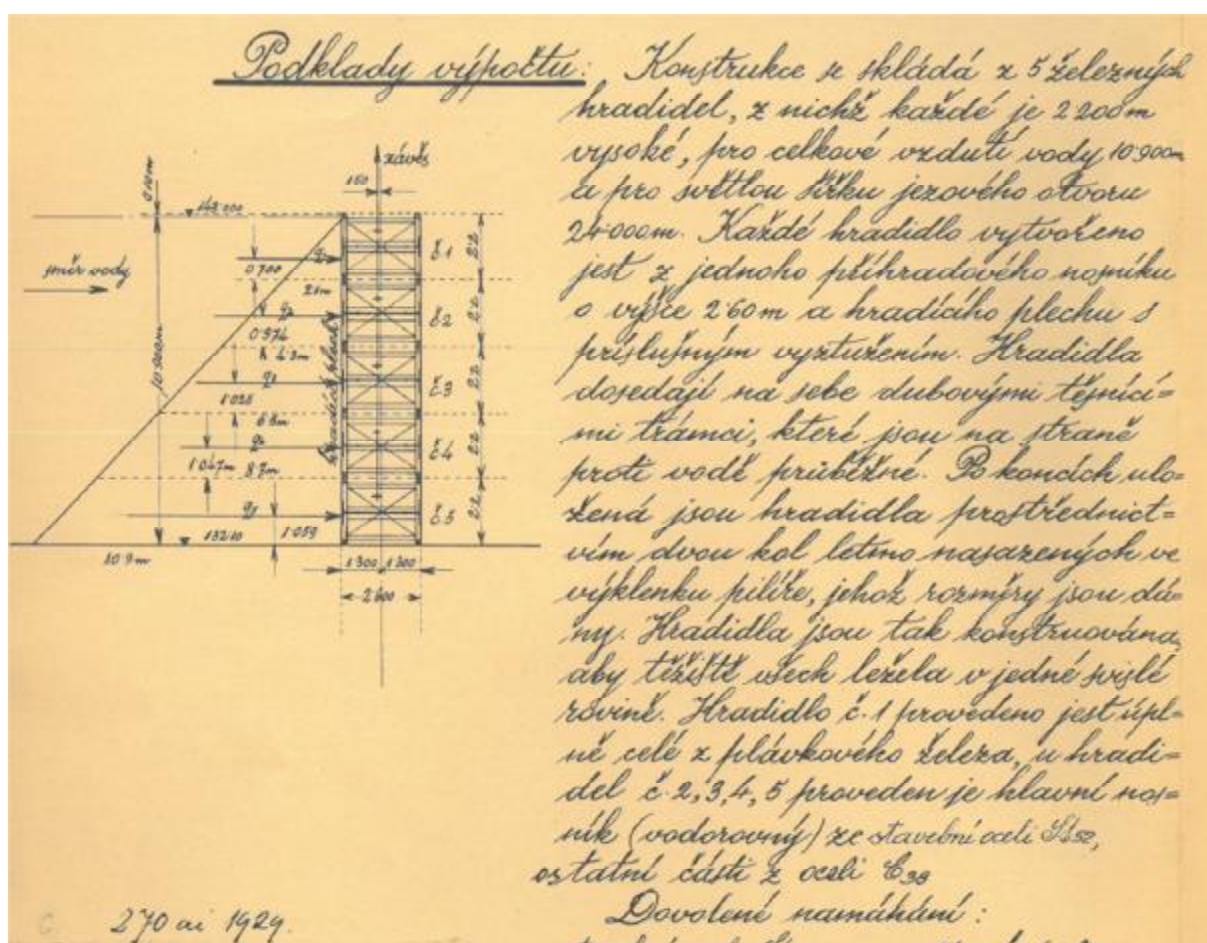 Podklady výpočtu:
Konstrukce se skládá z 5 železných
hradidel, z nichž každé je 2200m
vysoké, pro celkové vzdutí vody 10·900m
a pro světlou šířku jezového otvoru
24·000m. Každé hradidlo vytvořeno
jest z jednoho příhradového nosníku
o výšce 2·60m a hradícího plechu s
príslušným vyztužením. Hradidla
dosedají na sebe dubovými těsnící=
mi trámci, které jsou na straně
proti vodě průběžné. Po koncích ulo=
žená jsou hradidla prostřednict=
vím dvou kol letmo nasazených ve
výklenku pilíře, jehož rozměry jsou dá=
ny. Hradidla jsou tak konstruována,
aby těžiště všech ležela v jedné svislé
rovině. Hradidlo č.1 provedeno jest úpl=
ně celé z plávkového železa, u hradi=
del č.2,3,4,5 proveden je hlavní nos=
ník (vodorovný) ze stavební oceli St52,
ostatní části z oceli C38
Dovolené namáhání:
závěs
150
0·10m
143·000
směr vody
0·700
2·1m
č.1
2·2
0·974
4·3m
č.2
2·2
hradící plech
10·900m
1·025
6·5m
č.3
2·2
1·047m
8·7m
č.4
2·2
132·10
1·059
č.5
2·2
10·9m
1·300
1·300
2·600
270 ai 1929.